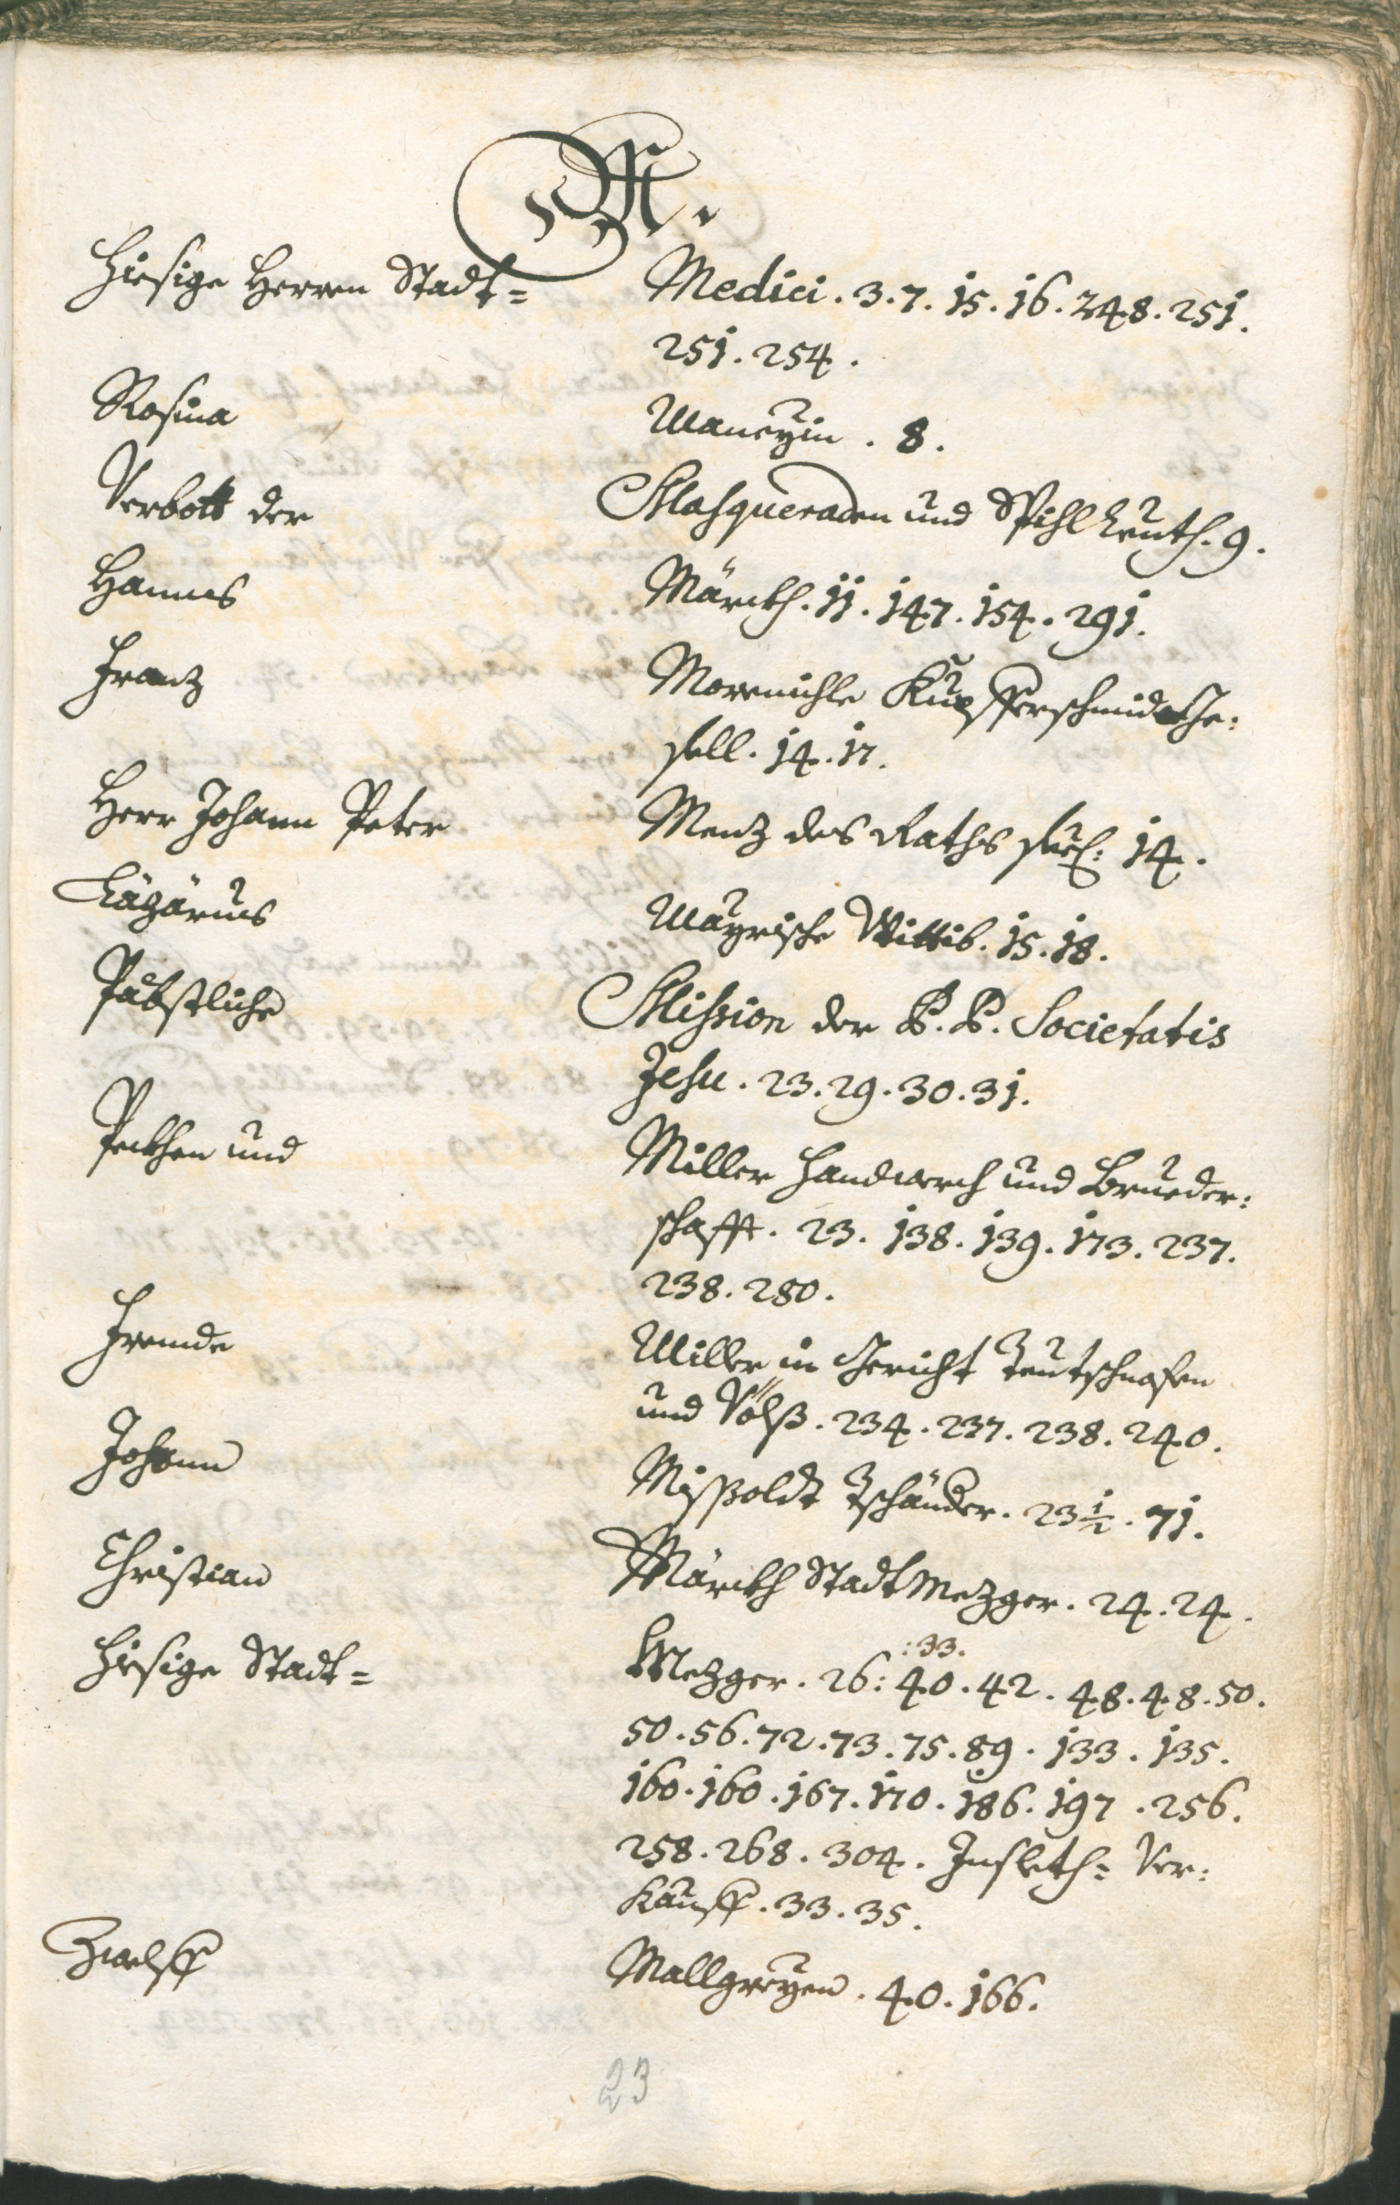 M.
Hiesige Herren Stadt= Medici. 3. 7. 15. 16. 248. 251.
251. 254.
Rosina Maureyin. 8.
Verbott der Masqueraden und Spihl Leuth. 9.
Hannes Märckh. 11. 147. 154. 291.
Franz Morenichle Kupfferschmids Ge:
sell. 14. 17.
Herr Johann Peter Menz des Raths 14.
Lazarus Mayrische Wittib. 15. 18.
Päbstliche Mission der P. P. Societatis
Jesu. 23. 29. 30. 31.
Peckhen und Miller Handwerch und Brueder:
schafft. 23. 138. 139. 173. 237.
238. 280.
Fremde Miller in Gericht Teutschnofen
und Völß. 234. 237. 238. 240.
Johann Mißoldt Tschander. 23 1/2. 71.
Christian Märckh Stadt Mezger. 24. 24.
:33.
Hiesige Stadt= Mezger. 26: 40. 42. 48. 48. 50.
50. 56. 72. 73. 75. 89. 133. 135.
160. 160. 167. 170. 186. 197. 256.
258. 268. 304. Insleth= Ver:
Kauff. 33. 35.
Zwelff Mallgreyen. 40. 166.
23